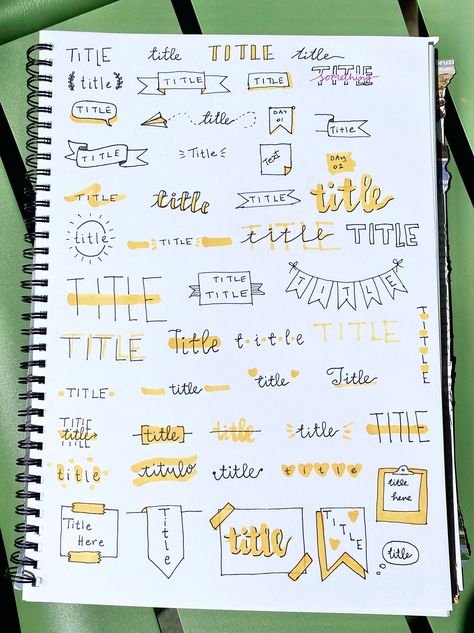 TITLE title TITLE title
title TITLE TITLE TITLE something
TITLE title DAY 01 Title
TITLE Title Text DAY 02
TITLE title TITLE title
title TITLE TITLE title TITLE
TITLE TITLE TITLE
TITLE
TITLE Title title TITLE TITLE
TITLE title title Title
TITLE
title title title title TITLE
TITLE
title titulo title title title
here
Title Title title TITLE title
Here